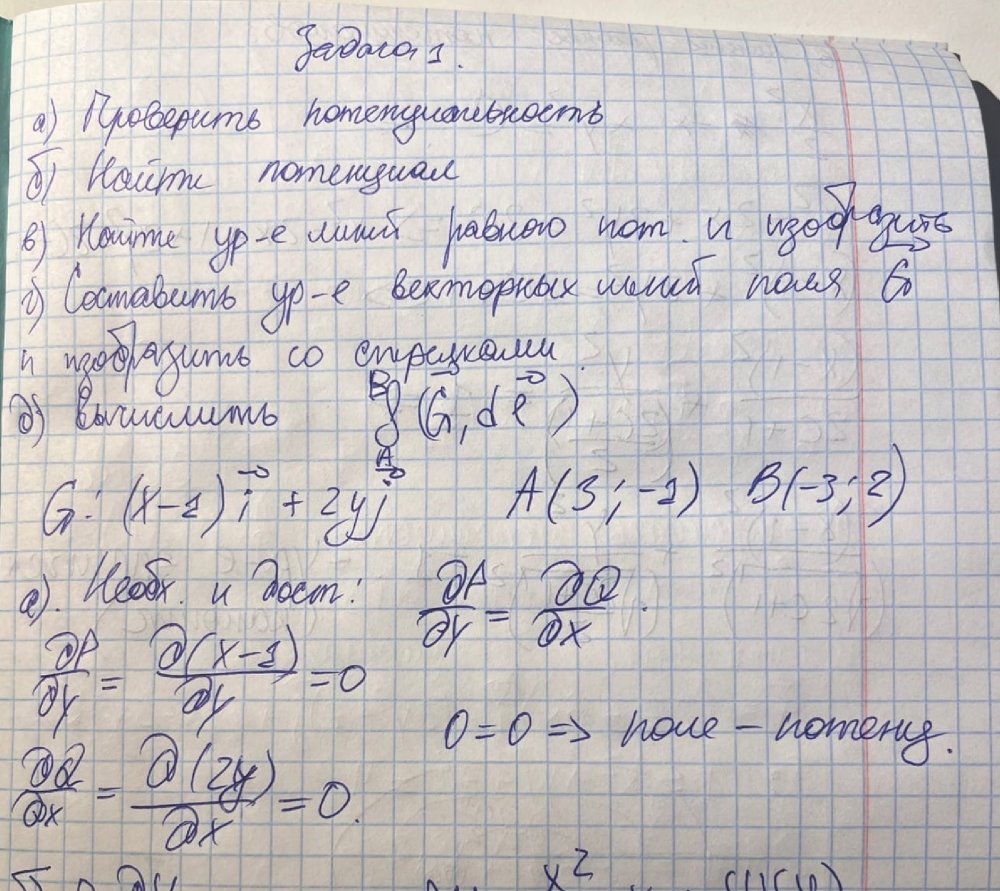 Задача 1.
а) Проверить потенциальность
б) Найти потенциал
в) Найти ур-е линий равного пот. и изобразить
г) Составить ур-е векторных линий поля G⃗
и изобразить со стрелками.
д) Вычислить ∫_A^B (G⃗, dℓ⃗)
G: (x-1)i⃗ + 2yj⃗ A(3;-1) B(-3;2)
а). Необх. и дост: ∂P/∂y = ∂Q/∂x.
∂P/∂y = ∂(x-1)/∂y = 0
0=0 => поле - потенц.
∂Q/∂x = ∂(2y)/∂x = 0.